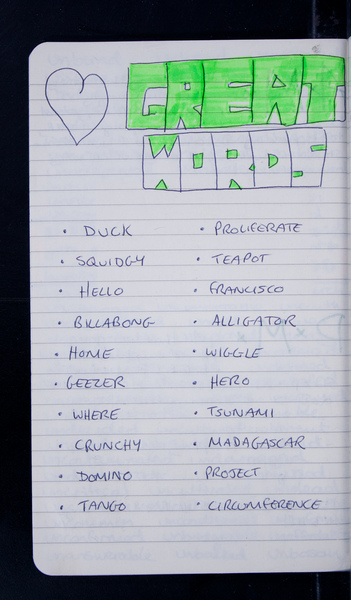 GREAT
WORDS
• DUCK
• SQUIDGY
• HELLO
• BILLABONG
• HOME
• GEEZER
• WHERE
• CRUNCHY
• DOMINO
• TANGO
• PROLIFERATE
• TEAPOT
• FRANCISCO
• ALLIGATOR
• WIGGLE
• HERO
• TSUNAMI
• MADAGASCAR
• PROJECT
• CIRCUMFERENCE